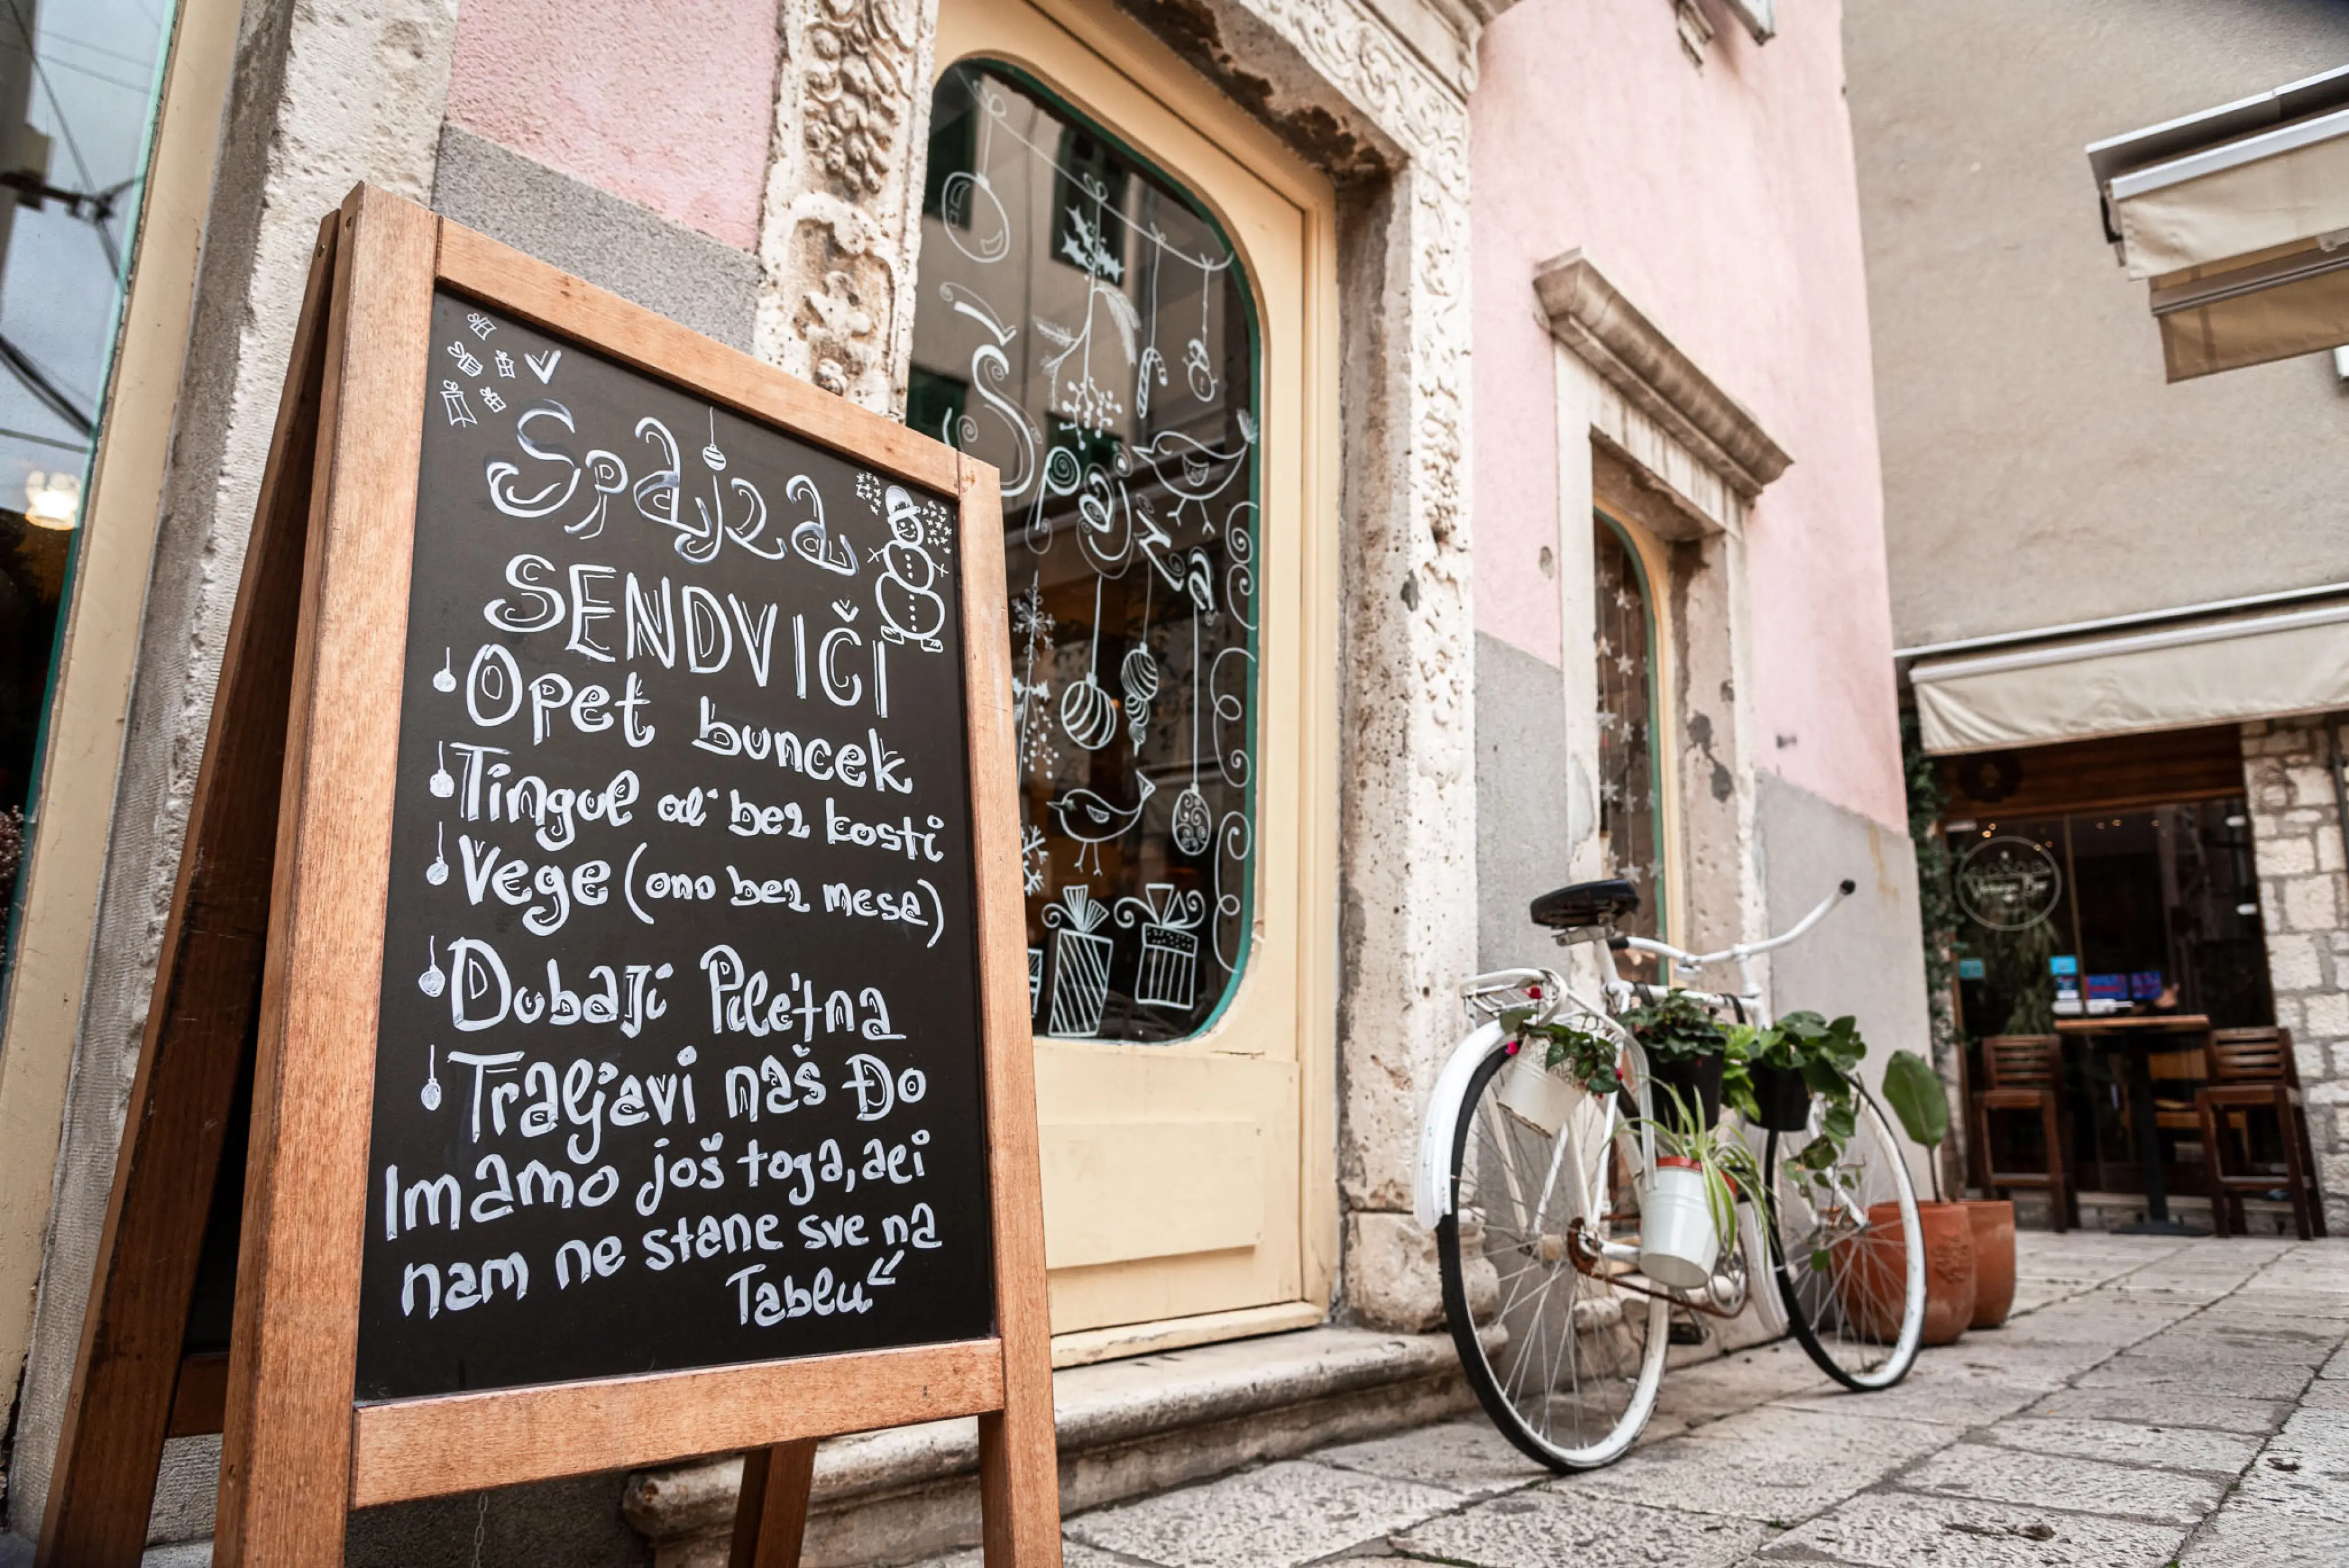 Spajza
SENDVIČI
Opet buncek
Tingul al' bez kosti
Vege (ono bez mesa)
Dubaji Piletina
Traljavi naš Đo
Imamo još toga, ali
nam ne stane sve na
Tablu
Špajza